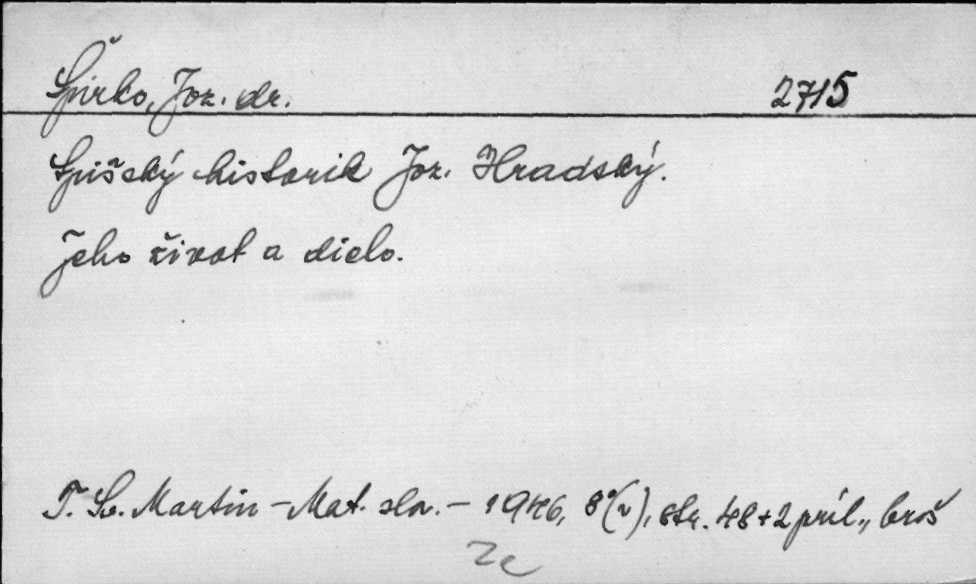 Špirko, Joz. dr. 2715
Spišský historik Joz. Hradský.
Jeho život a dielo.
T. Sv. Martin – Mat. slov. – 1946, 8°(v), str. 48+2 príl., brož